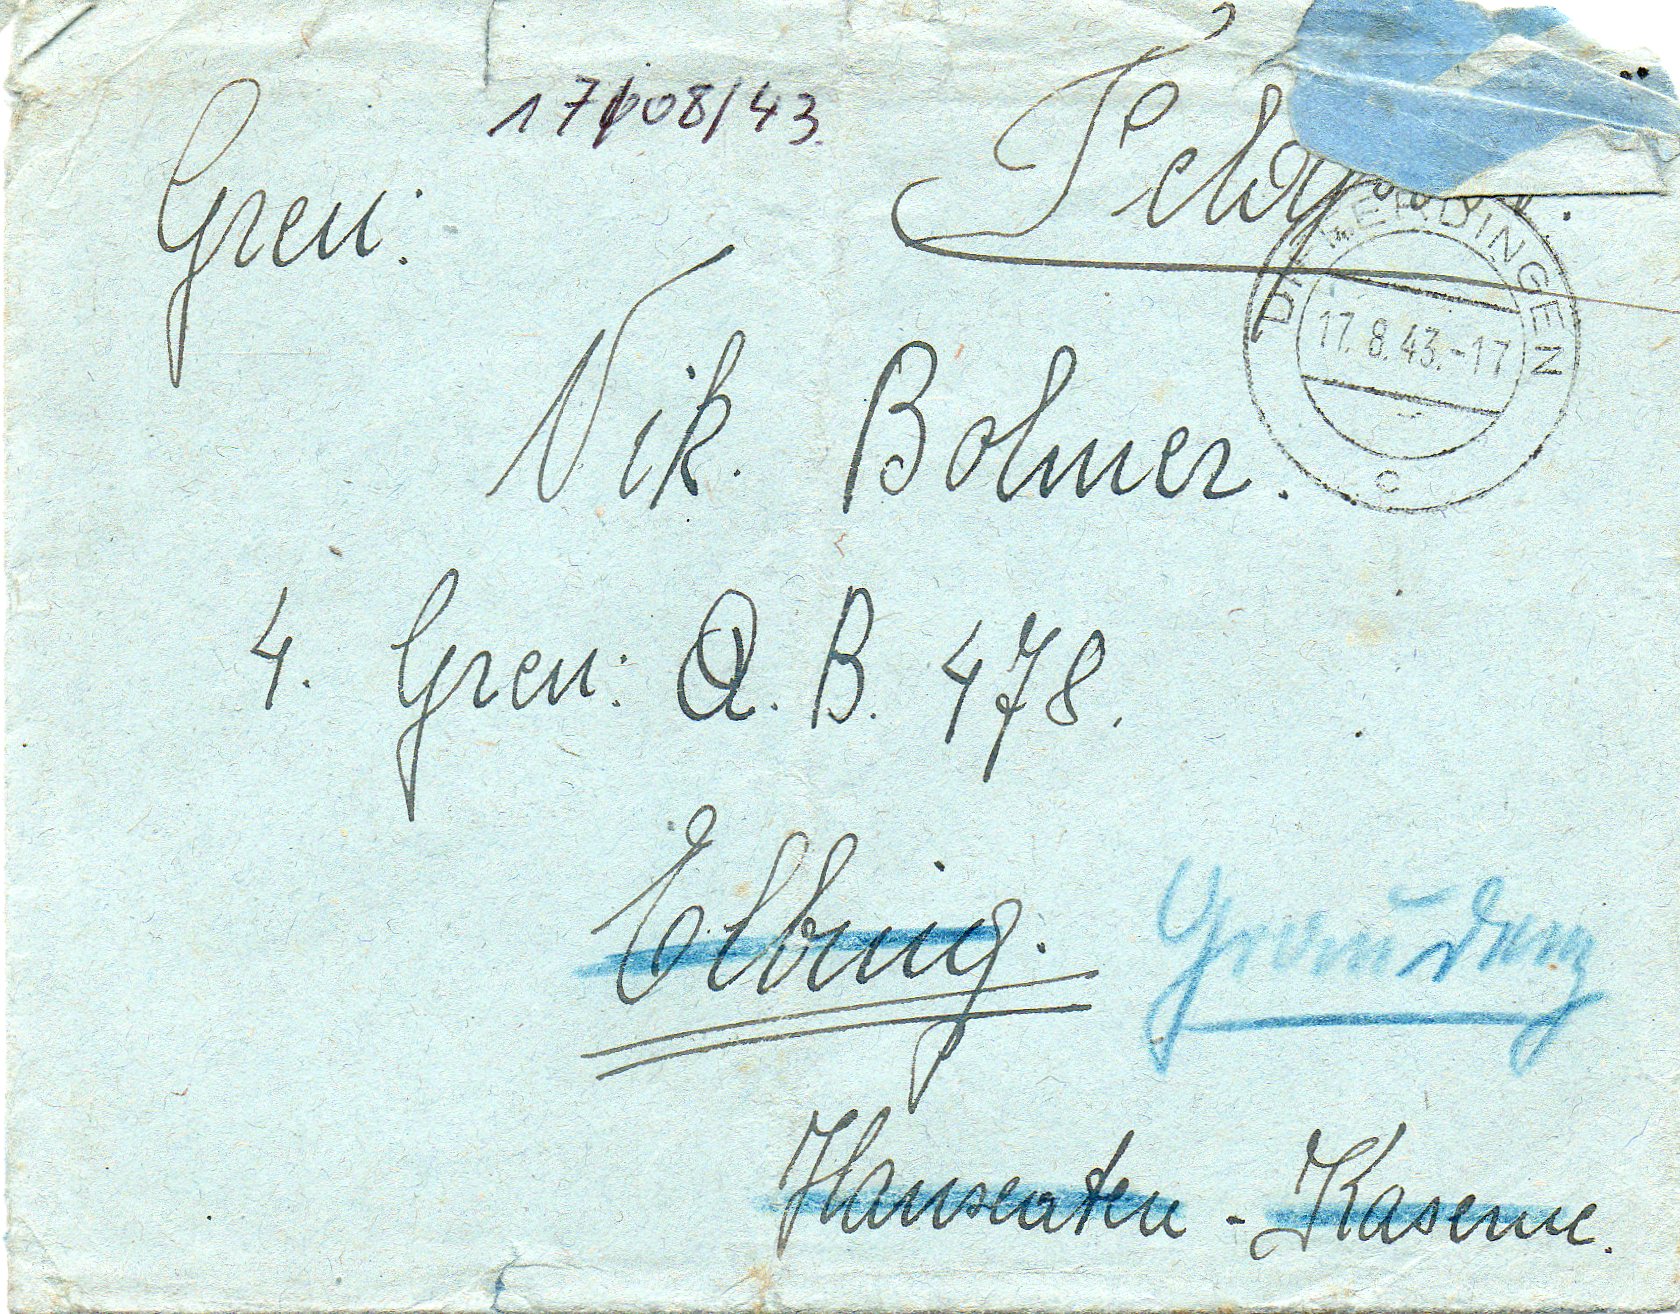 17/08/43.
Gren:
DIFFERDINGEN
17.8.43.-17
c
Nik. Bolmer.
4. Gren: A. B. 478.
Elbing.
Graudenz
Hanseaten - Kaserne.